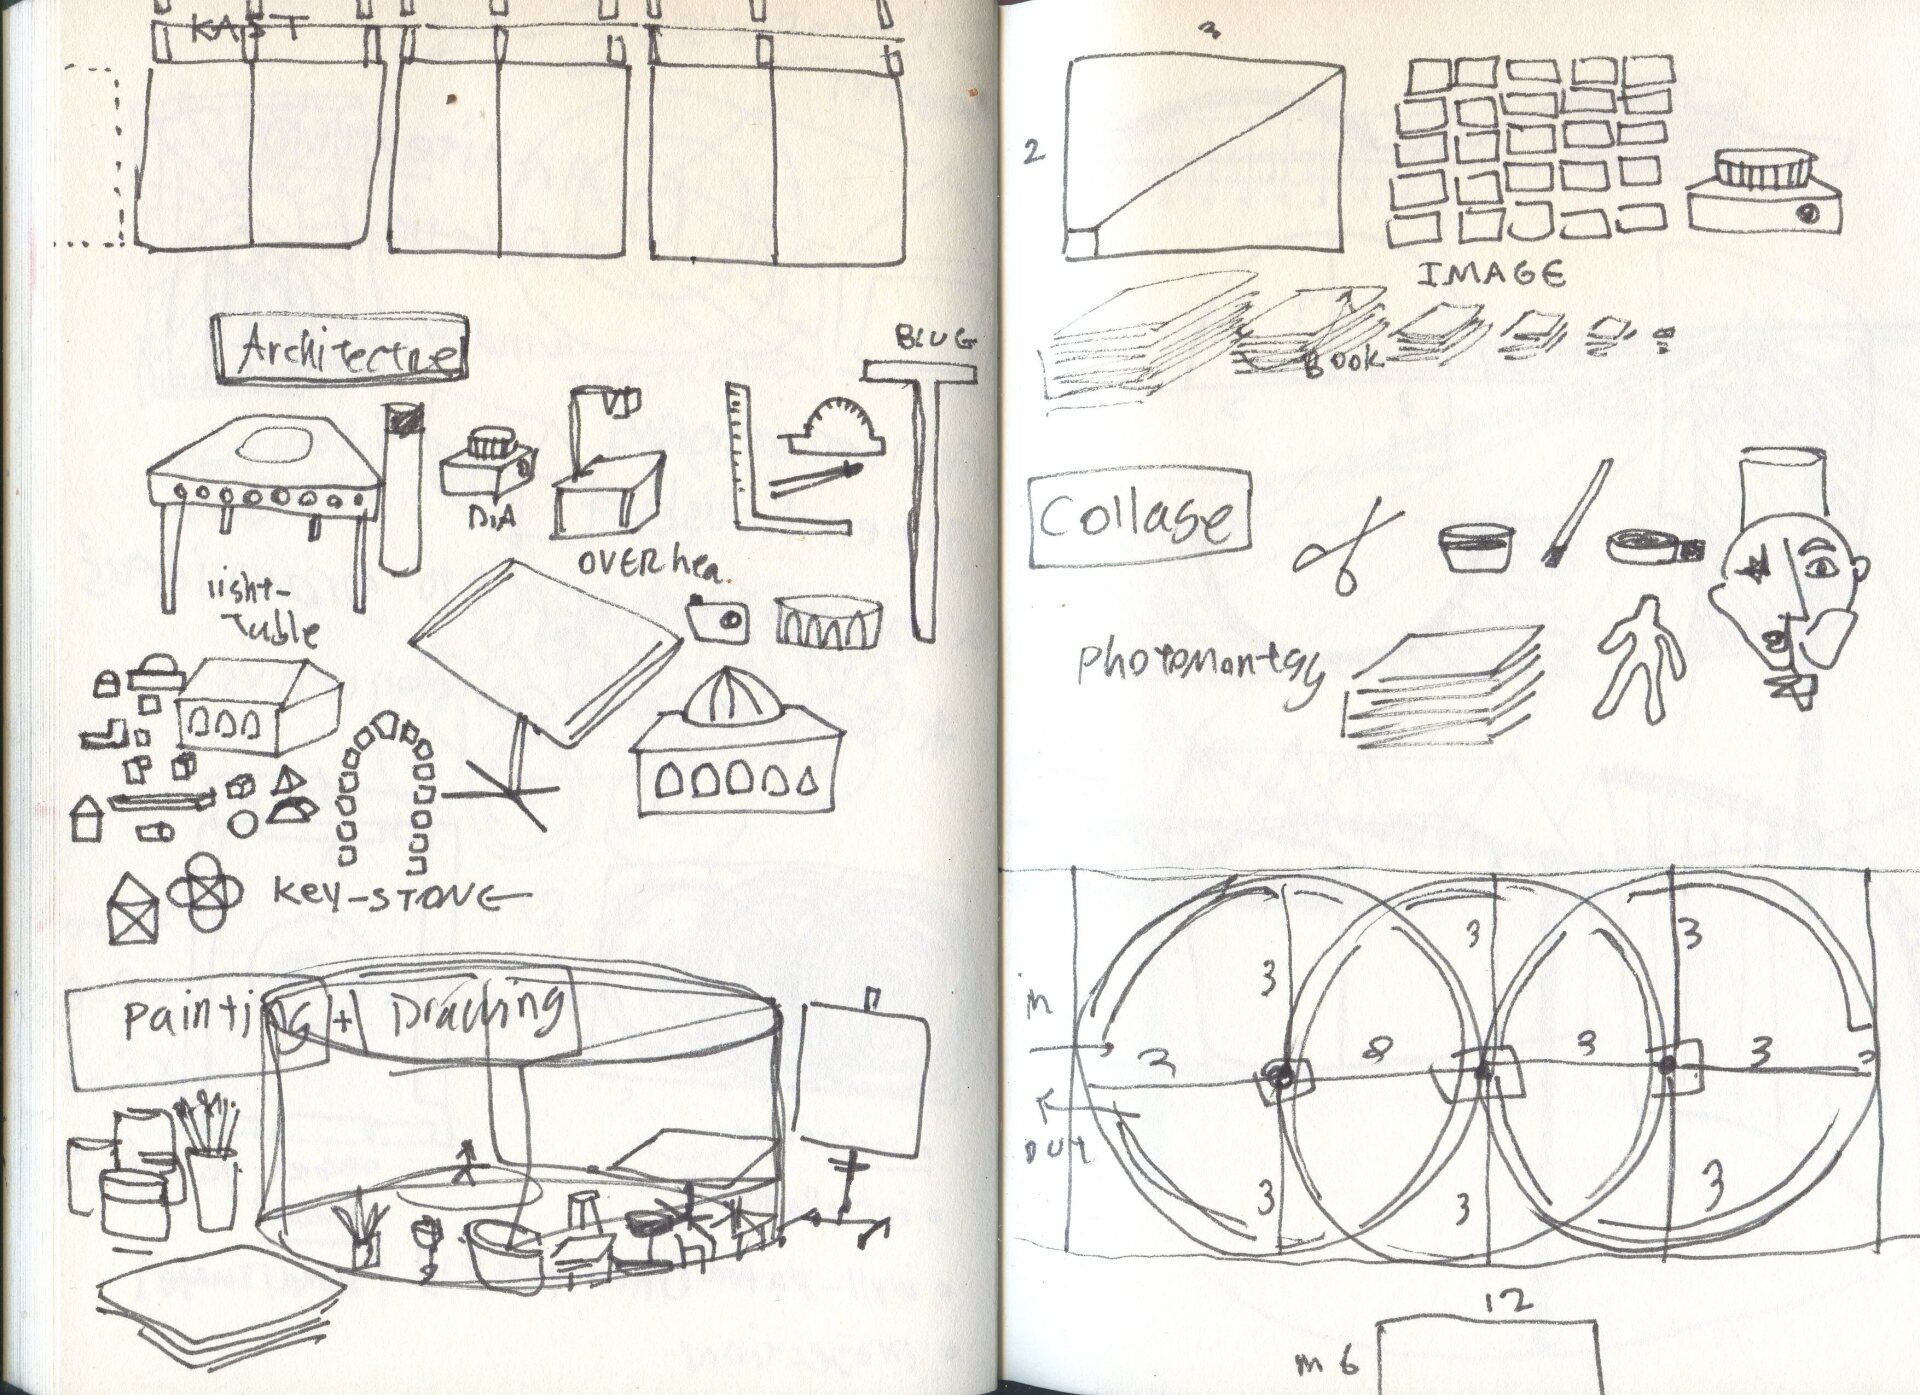 KAST
Architectue
BLUG
DIA
OVERhea.
light-
Table
KEY-STONE
Painting + Drawing
3
2
IMAGE
Book
Collage
Photomontag
3
3
3
in
2
8
3
3
OUT
3
3
3
12
m 6